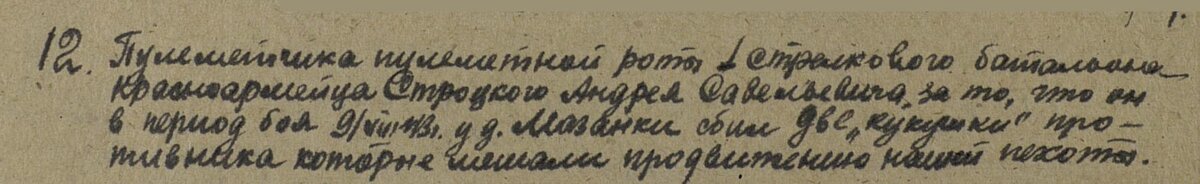 12. Пулеметчика пулеметной роты 1 стрелкового батальона
красноармейца Строцкого Андрея Савельевича, за то, что он
в период боя 9/VIII-43г. у д. Мазанки сбил две „кукушки" про-
тивника которые мешали продвижению нашей пехоты.